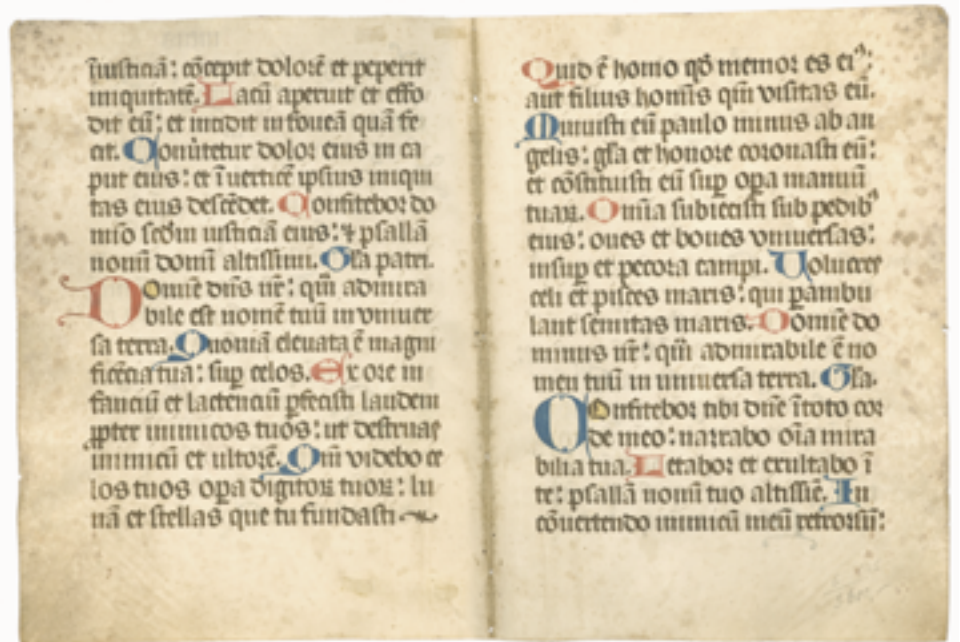 iniusticiā: cōcepit dolorē et peperit
iniquitatē. Lacū aperuit et effo
dit eū: et incidit in foueā quā fe
cit. Conūtetur dolor eius in ca
put eius: et ī verticē ipsius iniqui
tas eius descēdet. Confitebor do
mīo scd̄m iusticiā eius: ⁊ psallā
nomī domī altissimi. Glā patri.
Domīe dn̄s nr̄: qm̄ admira
bile est nomē tuū in vniuer
sa terra. Quoniā eleuata ē magni
ficēcia tua: suꝑ celos. Ex ore in
fanciū et lactenciū ꝑfecisti laudem
ꝓpter inimicos tuos: ut destruas
inimicū et ultorē. Qm̄ videbo ce
los tuos oꝑa digitoꝝ tuoꝝ: lu
nā et stellas que tu fundasti
Quid ē homo qd̄ memor es eiꝰ:
aut filius homīs qm̄ visitas eū.
Minuisti eū paulo minus ab an
gelis: glā et honore coronasti eū:
et cōstituisti eū suꝑ oꝑa manuū
tuaꝝ. Omīa subiecisti sub pedibꝰ
eius: oues et boues vniuersas:
insuꝑ et pecora campi. Volucres
celi et pisces maris: qui ꝑambu
lant semitas maris. Domīe do
minus nr̄: qm̄ admirabile ē no
men tuū in uniuersa terra. Glā.
Confitebor tibi dn̄e ī toto cor
de meo: narrabo oīa mira
bilia tua. Letabor et exultabo ī
te: psallā nomī tuo altissīe. In
cōuertendo inimicū meū retrorsū: